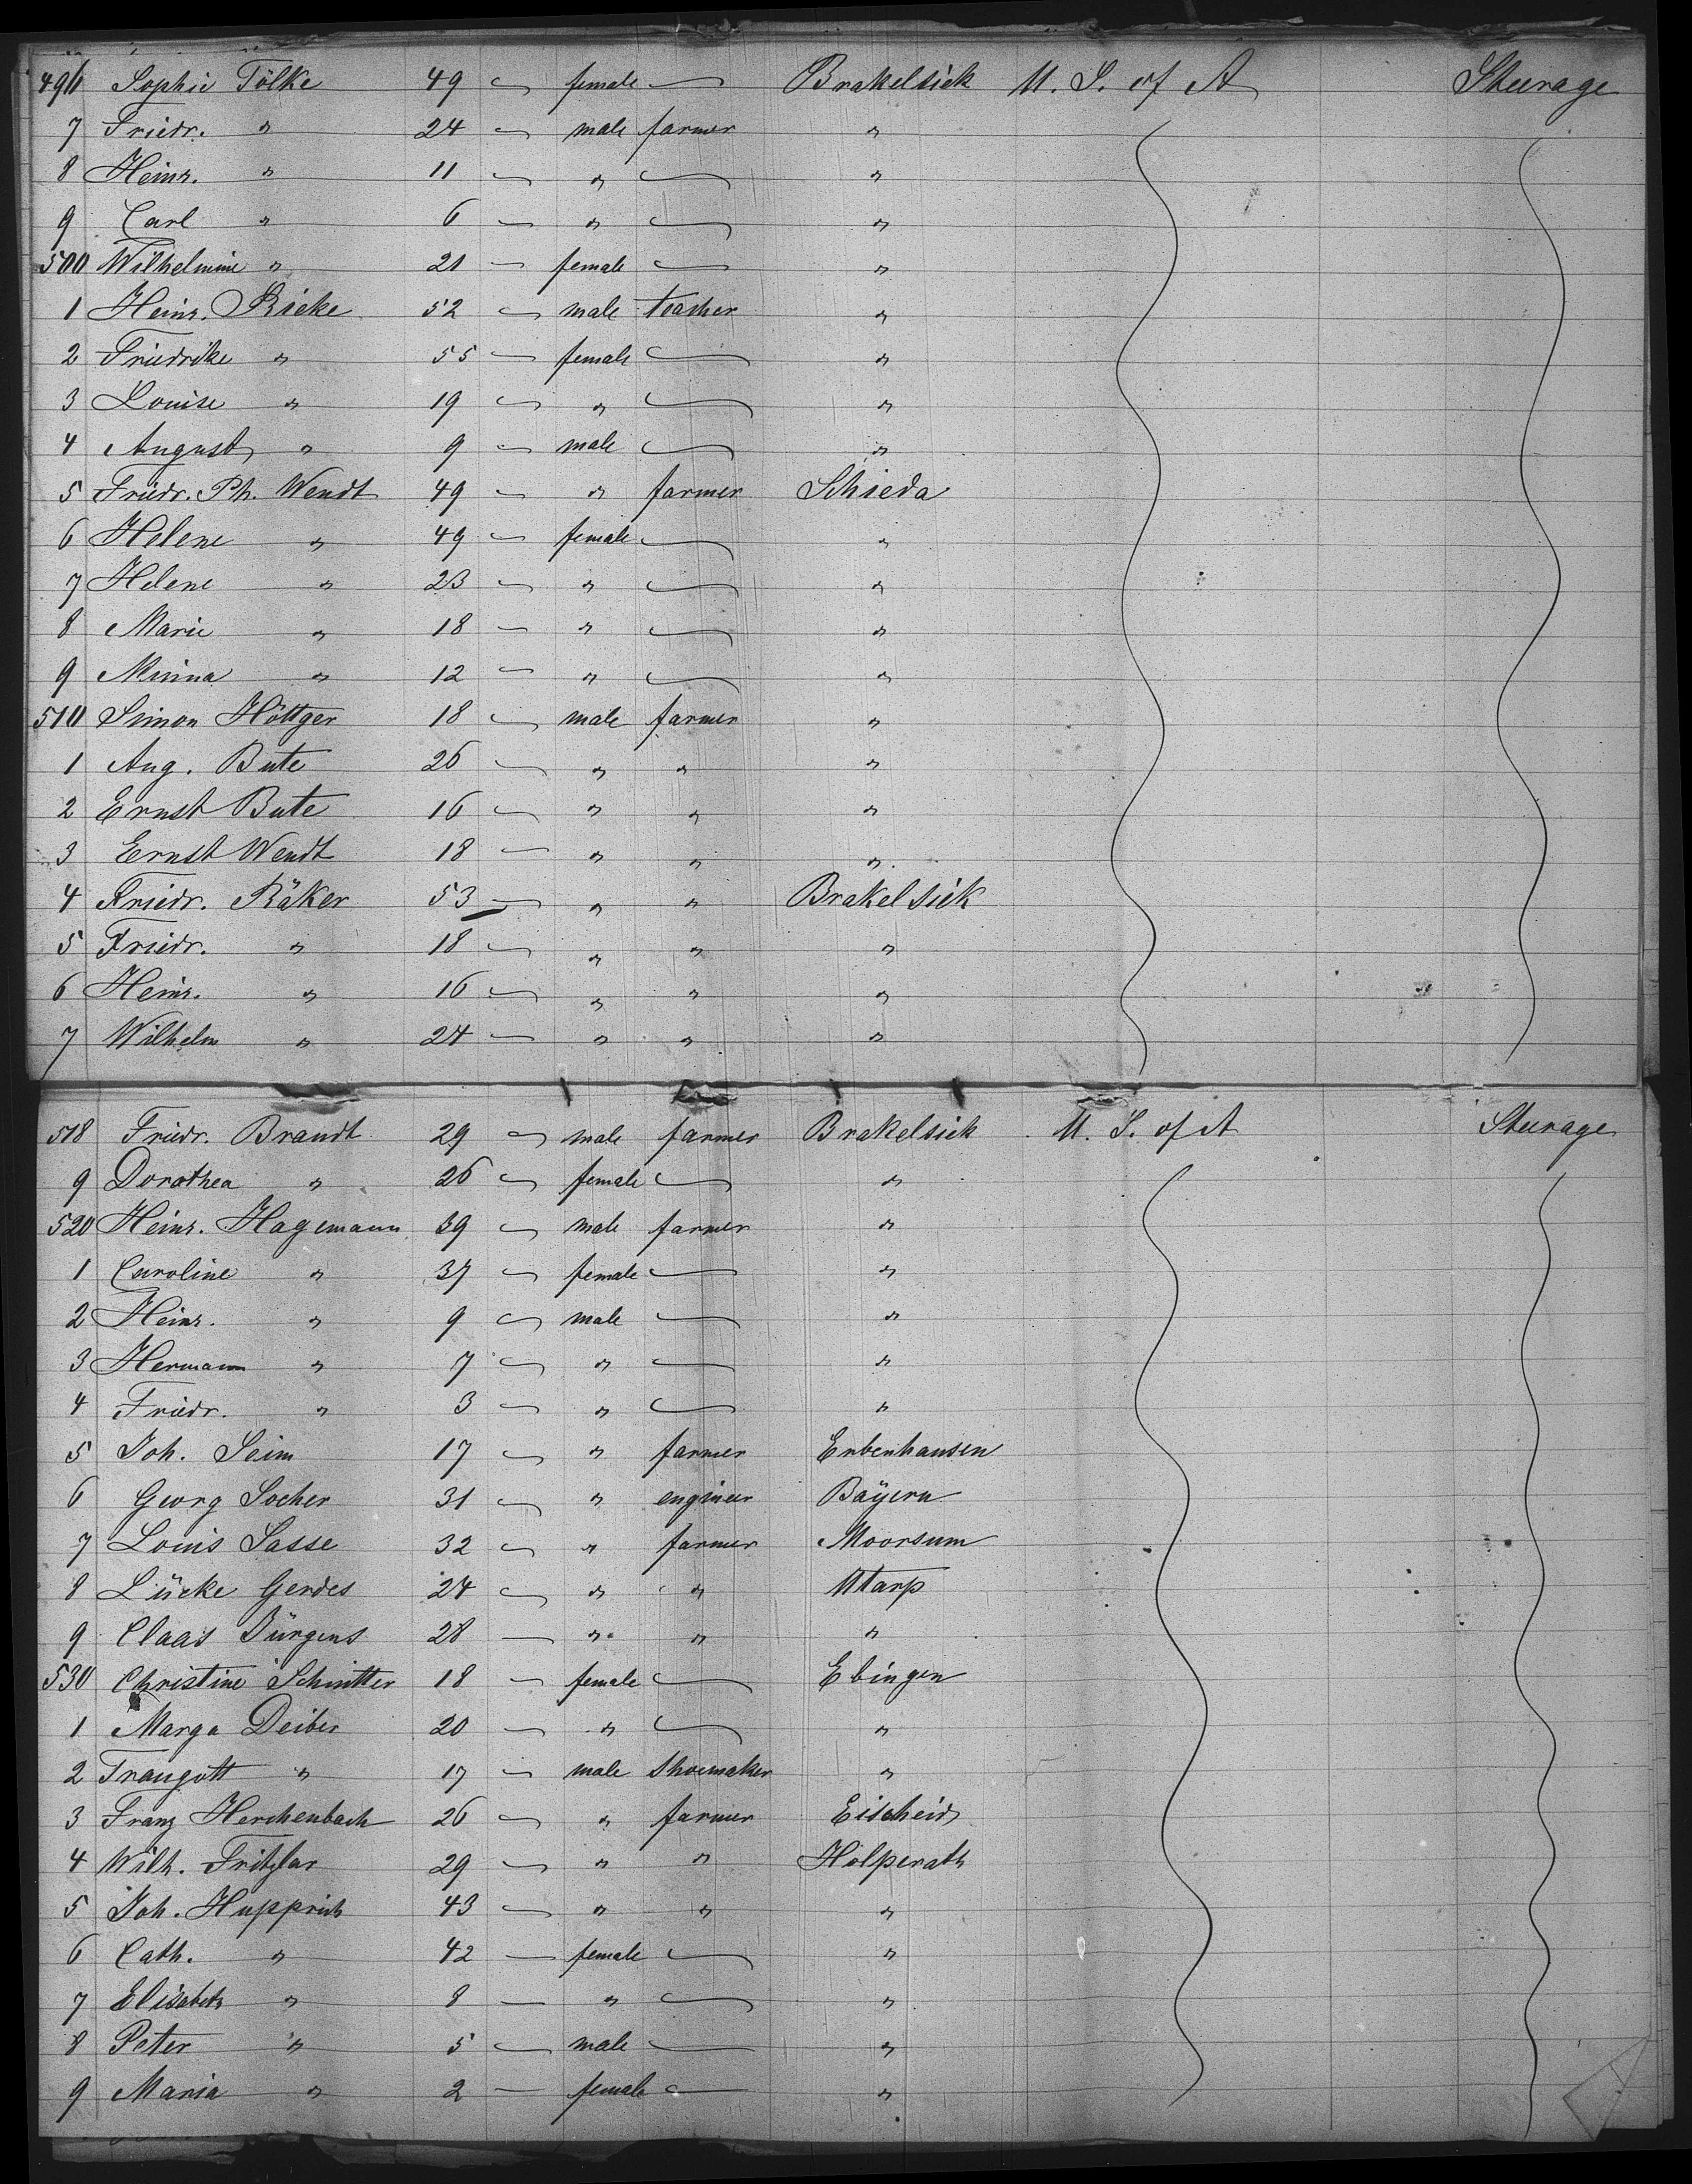 496 Sophie Tölke 49 female Brakelsiek U. S. of A Steerage
7 Friedr. " 24 male farmer "
8 Heinr. " 11 " "
9 Carl " 6 " "
500 Wilhelmine " 21 female "
1 Heinr. Rieke 52 male teacher "
2 Friedrike " 55 female "
3 Louise " 19 " "
4 August " 9 male "
5 Friedr. Ph. Wendt 49 " farmer Schieda
6 Helene " 49 female "
7 Helene " 23 " "
8 Marie " 18 " "
9 Minna " 12 " "
510 Simon Höttger 18 male farmer "
1 Aug. Bute 26 " " "
2 Ernst Bute 16 " " "
3 Ernst Wendt 18 " " "
4 Friedr. Räker 53 " " Brakelsiek
5 Friedr. " 18 " " "
6 Heinr. " 16 " " "
7 Wilhelm " 24 " " "
518 Friedr. Brandt 29 male farmer Brakelsiek U. S. of A Steerage
9 Dorothea " 26 female "
520 Heinr. Hagemann 39 male farmer "
1 Caroline " 37 female "
2 Heinr. " 9 male "
3 Hermann " 7 " "
4 Friedr. " 3 " "
5 Joh. Seim 17 " farmer Erbenhausen
6 Georg Locher 31 " engineer Bayern
7 Louis Sasse 32 " farmer Moorsum
8 Lücke Gerdes 24 " " Utarp
9 Claas Jürgens 28 " " "
530 Christine Schnitter 18 female Ebingen
1 Marga Deiber 20 " "
2 Traugott " 17 male shoemaker "
3 Franz Herchenbach 26 " farmer Eischeid
4 Wilh. Fritzlar 29 " " Hölperath
5 Joh. Hupprich 43 " " "
6 Cath. " 42 female "
7 Elisabeth " 8 " "
8 Peter " 5 male "
9 Maria " 2 female "